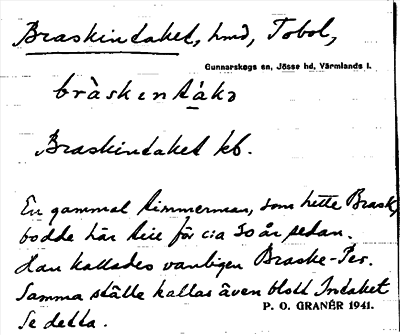 Braskintaket, hmd, Tobol,
Gunnarskogs sn, Jösse hd, Värmlands l.
bràskentákə
Braskintaket kb.
En gammal timmerman, som hette Brask,
bodde här till för c:a 30 år sedan.
Han kallades vanligen Braske-Per.
Samma ställe kallas även blott Intaket
P. O. GRANÉR 1941.
Se detta.